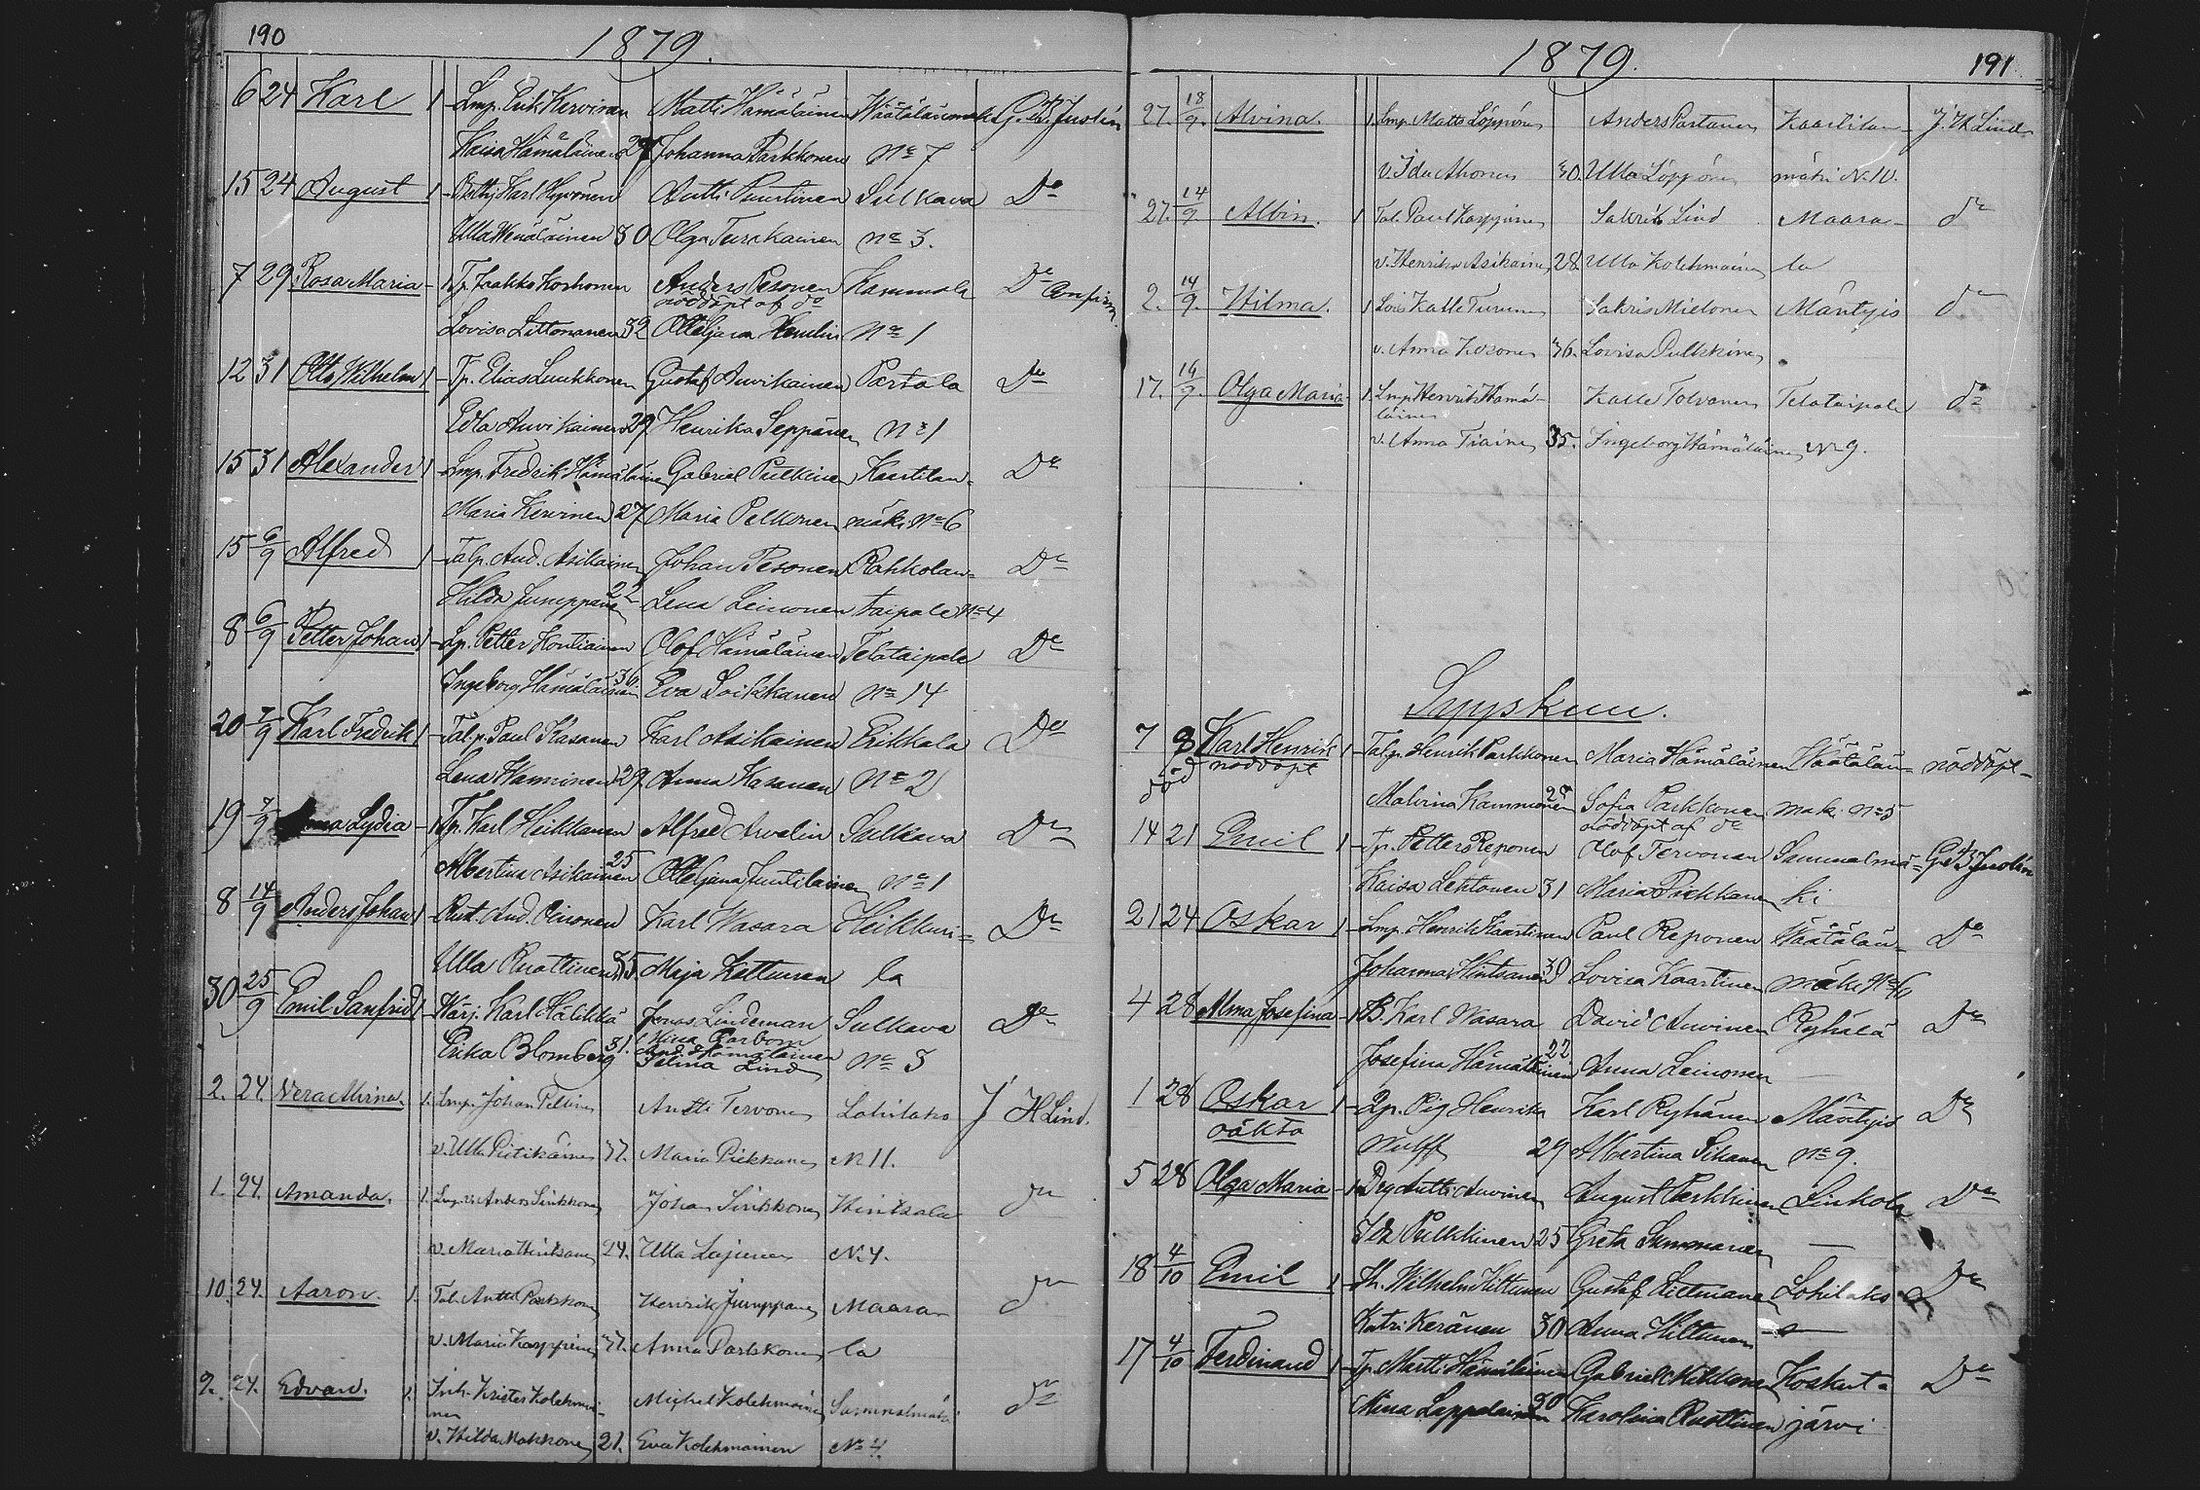 190
1879.
6 24 Karl 1 Lmp. Erik Kervinen Matti Hämäläinen Väätälänmäki G. B. Juslin
Kaisa Hämäläinen 27 Johanna Parkkonen No 7
15 24 August 1 Karl Hyvönen Antti Puustinen Sulkava Do
Ulla Wenäläinen 30 Olga Turakainen No 3.
7 29 Rosa Maria 1 Tp. Jaakko Korhonen Anders Pesonen Kammola Do Confirm.
nöddöpt af do
Lovisa Littonanen 32 Ottiljana Hemlin No 1
12 31 Otto Wilhelm 1 Tp. Elias Luukkonen Gustaf Auvikainen Partala Do
Edla Auvikainen 29 Henrika Seppänen No 1
15 31 Alexander 1 Lmp. Fredrik Hämäläinen Gabriel Pulkinen Kaartilan-
Do
Maria Kervinen 27 Maria Pelkonen mäki No 6
15 6/9 Alfred 1 Talp. And. Asikainen Johan Pesonen Rahkolan- Do
Hilda Jumppanen 22 Lena Leinonen taipale No 4
8 6/9 Petter Johan 1 Lp. Petter Kontiainen Olof Hämäläinen Telataipale Do
Ingeborg Hämäläinen 36 Eva Loikkanen No 14
20 7/9 Karl Fredrik 1 Talp. Paul Kasanen Karl Asikainen Erikkala Do
Lena Hanninen 29 Anna Kasanen No 2
19 7/9 Lydia 1 Tp. Karl Heikkanen Alfred Arvelin Sulkava Do
Albertina Asikainen 25 Ottiljana Juutilainen No 1
8 14/9 Anders Johan 1 Rust. And. Oinonen Karl Wasara Heikkuri= Do
Ulla Ruottinen 35 Maja Kettunen la
30 25/9 Emil Sanfrid 1 Karl Hälikkä Jonas Lindeman Sulkava Do
Mina Carbom
Erika Blomberg 31. And. Hämäläinen No 3
Selma Lind
2. 24. Vera Mirna. 1. Lmp. Johan Pellinen Antti Tervonen Lohilaks J H Lind.
v. Ulla Pietikäinen 37. Maria Pirkkanen N 11.
1. 24. Amanda. 1. Lmp. Anders Sinkkonen Johan Sinkkonen Hintsala do
v. Maria Hintsanen 24. Ulla Lajunen N. 4.
10. 24. Aaron. 1. Tal. Antti Parkkonen Henrik Jumppanen Maara- do
v. Maria Karppinen 37. Anna Parkkonen la
9. 24. Edvard. 1. Inh. Krister Kolehmai- Mighel Kolehmainen Sammalmäki do
nen
v. Hilda Makkonen 21. Eva Kolehmainen No 4.
1879.
191
27. 18/9. Alvina. 1. Lmp. Matts Löppönen Anders Partanen Kaartilan- J. H Lind
v. Ida Ahonen 30. Ulla Löppönen mäki N. 10.
27. 14/9 Albin. 1 Tal. Paul Karppinen Sakris Lind Maara- do
v. Henrika Asikainen 28. Ulla Kolehmainen la
2. 14/9. Hilma. 1 Lois Kalle Turunen Sakris Mielonen Mäntyis do
v. Anna Ikosonen 36. Lovisa Pulkkinen
17. 14/9. Olga Maria 1. Lmp. Henrik Hämä- Kalle Tolvanen Telataipale do
läinen
v. Anna Tiainen 35. Ingeborg Hämäläinen N 9.
Sippskun.
7 9 Karl Henrik 1 Talp. Henrik Parkkonen Maria Hämäläinen Väätälän- nöddöpt-
död nöddöpt
Malvina Kammonen 29 Sofia Parkkonen mäki No 5
nöddöpt af do
14 21 Emil 1 Tp. Petter Reponen Olof Tervonen Sammalmä- G. B. Juslin
Kaisa Lehtonen 31 Maria Pirkkanen ki
21 24 Oskar 1 Lmp. Henrik Kaartinen Paul Reponen Väätälän- Do
Johanna Hintsanen 39 Lovisa Kaartinen mäki No 6
4 28 Alma Josefina 1 B. Karl Wasara David Auvinen Ryhälä Do
Josefina Hämäläinen 22 Anna Leinonen
1 28 Oskar 1 Qp. Pig Henrika Karl Ryhänen Mäntyis Do
oäkta Wulff 29 Albertina Sihanen No 9.
5 28 Olga Maria 1 Drg Antti Auvinen August Parkkinen Linkola Do
Ida Pulkkinen 25 Greta Summanen —
18 4/10 Emil 1 Wilhelm Hiltunen Gustaf Liettmanen Lohilaks Do
Katri Keränen 30 Anna Hiltunen
17 4/10 Ferdinand 1 Tp. Martti Hämäläinen Gabriel Mikkonen Koskut= Do
Mina Lappalainen 30 Karolina Ruottinen järvi